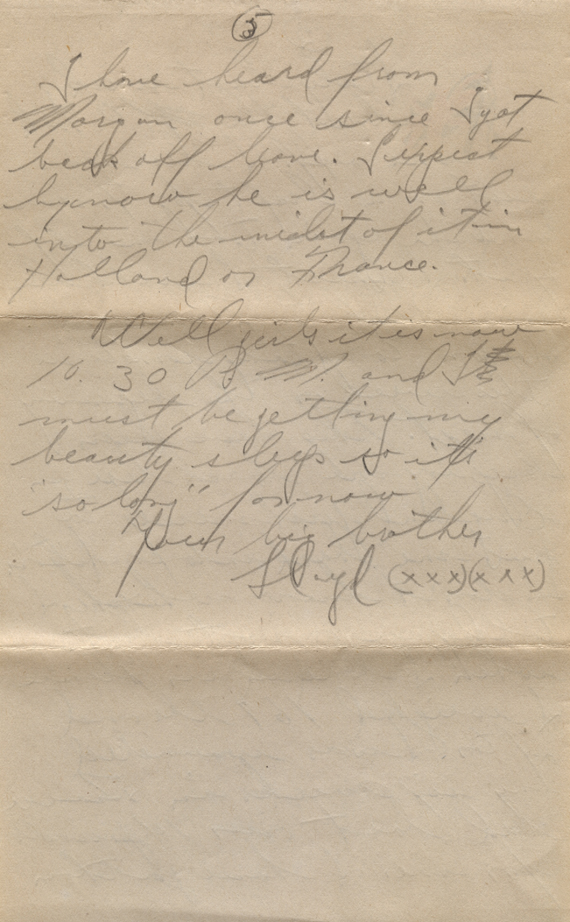 5
I have heard from
Morgan once since I got
back off leave. I expect
by now he is well
into the midst of it in
Holland or France.
Well girls it is now
10.30 P.M. and I
must be getting my
beauty sleep so it's
"so long" for now
Your big brother
Lloyd (xxx)(xxx)